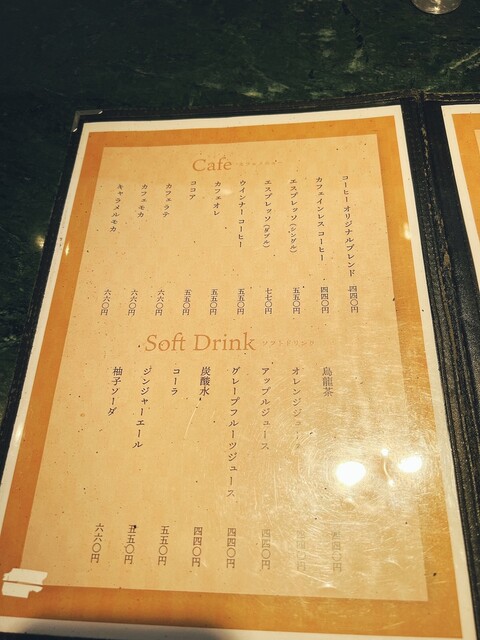 Cafe カフェメニュー
コーヒーオリジナルブレンド 四四〇円
カフェインレスコーヒー 四四〇円
エスプレッソ(シングル) 五五〇円
エスプレッソ(ダブル) 七七〇円
ウインナーコーヒー 五五〇円
カフェオレ 五五〇円
ココア 五五〇円
カフェラテ 六六〇円
カフェモカ 六六〇円
キャラメルモカ 六六〇円
Soft Drink ソフトドリンク
烏龍茶 四四〇円
オレンジジュース 四四〇円
アップルジュース 四四〇円
グレープフルーツジュース 四四〇円
炭酸水 四四〇円
コーラ 五五〇円
ジンジャーエール 五五〇円
柚子ソーダ 六六〇円